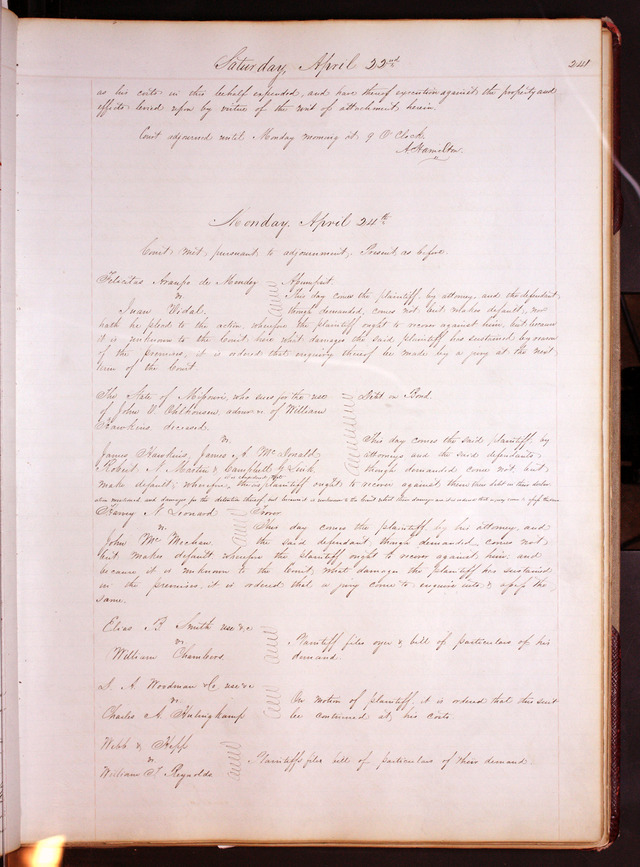 Saturday, April 22nd 241
as his costs in this behalf expended, and have thereof execution against the property and
effects levied upon by virtue of the writ of attachment herein.
Court adjourned until Monday morning at 9 O'Clock.
A Hamilton
Monday, April 24th
Court met pursuant to adjournment. Present as before.
Felicitas Araupo de Mendez Assumpsit.
vs. This day comes the plaintiff, by attorney, and the defendant,
Juan Vidal. though demanded, comes not, but makes default, nor
hath he plead to the action, wherefore the plaintiff ought to recover against him, but because
it is unknown to the Court here what damages the said plaintiff has sustained by reason
of the premises, it is ordered that enquiry thereof be made by a jury at the next
term of the Court
The State of Missouri, who sues for the use Debt on Bond.
of John V. Ohlhousen, admr &c of William
Hawkins deceased.
vs. This day comes the said plaintiff, by
James Hawkins, James A. McDonald, attorneys and the said defendants
Robert N. Martin & Campbell G. though demanded come not, but
make default; wherefore, the plaintiff ought to recover against them
Harry N. Leonard Error
vs. This day comes the plaintiff by his attorney, and
John McMechan the said defendant, though demanded, comes not,
but makes default wherefore the plaintiff ought to recover against him, and
because it is unknown to the Court, what damages the plaintiff has sustained
in the premises, it is ordered that a jury come to enquire into & assess the
same.
Elias B. Smith use &c
vs. Plaintiff files oyer & bill of particulars of his
William Chambers demand.
S. A. Woodman & Co. use &c
vs. On motion of plaintiff, it is ordered that this suit
Charles A. be continued at his costs.
Webb & Hepp
vs. Plaintiffs files bill of particulars of their demand
William T. Reynolds